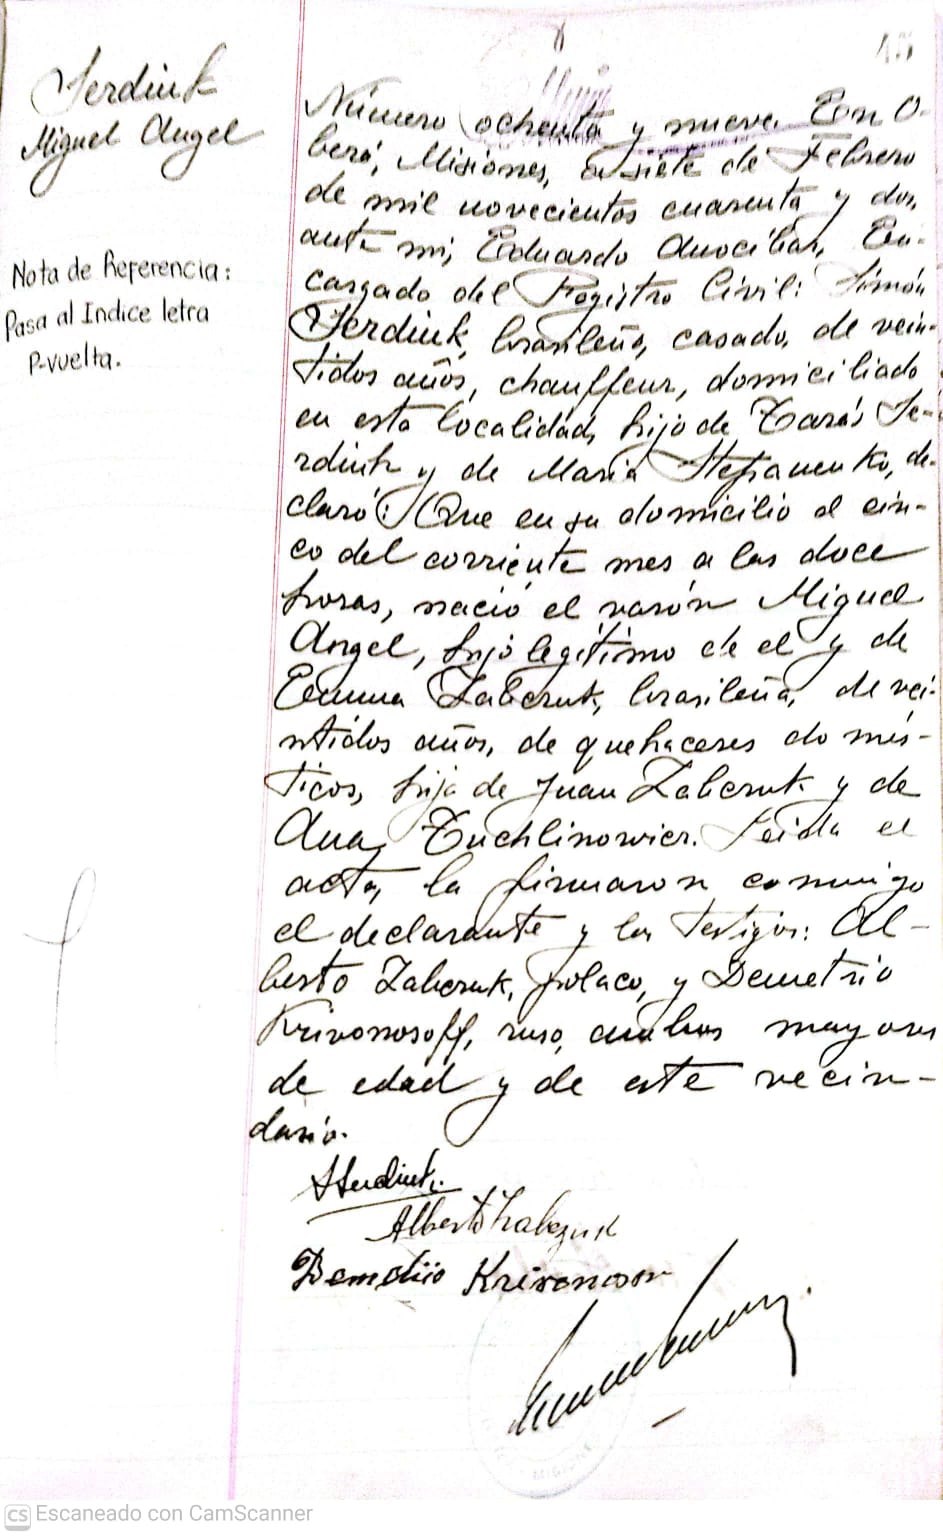 45
Serdiuk
Miguel Angel
Nota de Referencia:
Pasa al Indice letra
P-vuelta.
Número ochenta y nueve En O-
berá, Misiones, a siete de Febrero
de mil novecientos cuarenta y dos,
ante mi, Eduardo Anocibar, En-
cargado del Registro Civil: Simón
Serdiuk, brasileño, casado, de vein-
tidos años, chauffeur, domiciliado
en esta localidad, hijo de Tarás Se-
rdiuk y de María Stefanenko, de-
claró: Que en su domicilio el cin-
co del corriente mes a las doce
horas, nació el varón Miguel
Angel, hijo legítimo de el y de
Emma Zabczuk, brasileña, de vei-
ntidos años, de quehaceres domés-
ticos, hija de Juan Zabczuk y de
Ana Tuchlinowicz. Leida el
acta, la firmaron conmigo
el declarante y los testigos: Al-
berto Zabczuk, polaco, y Demetrio
Krivonosoff, ruso, ambos mayores
de edad y de este vecin-
dario.
SSerdiuk
Alberto Zabczuk
Demetiio Krivonosov
MISIONES
CS Escaneado con CamScanner